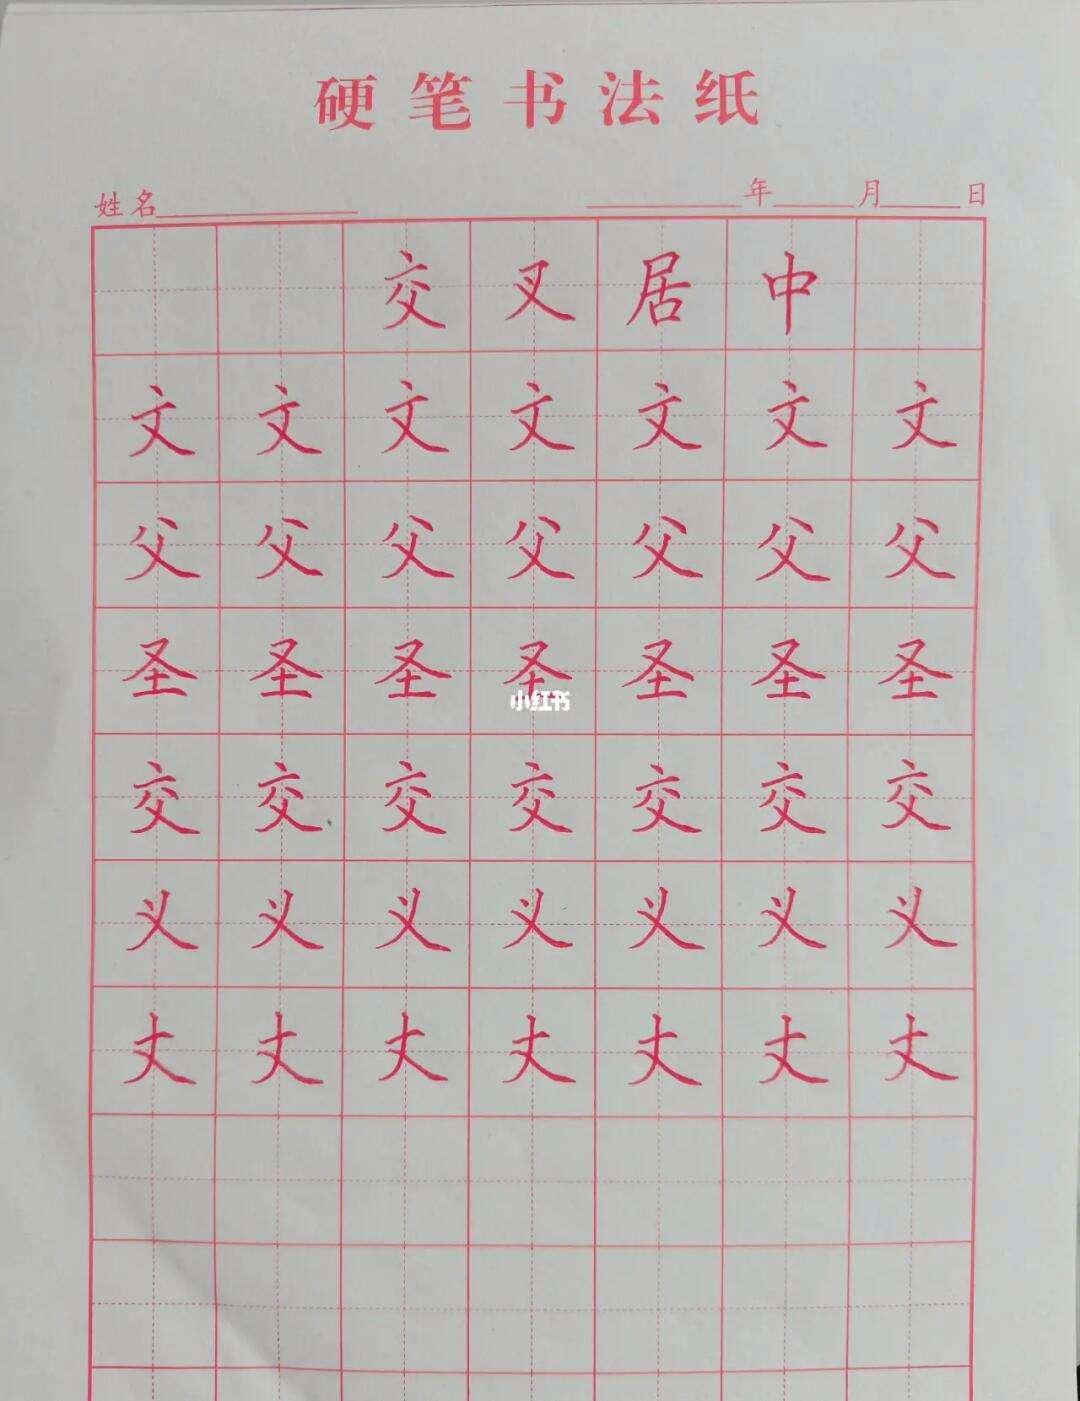 硬笔书法纸
姓名 年 月 日
交叉居中
文文文文文文文
父父父父父父父
圣圣圣圣圣圣圣
小红书
交交交交交交交
义义义义义义义
丈丈丈丈丈丈丈